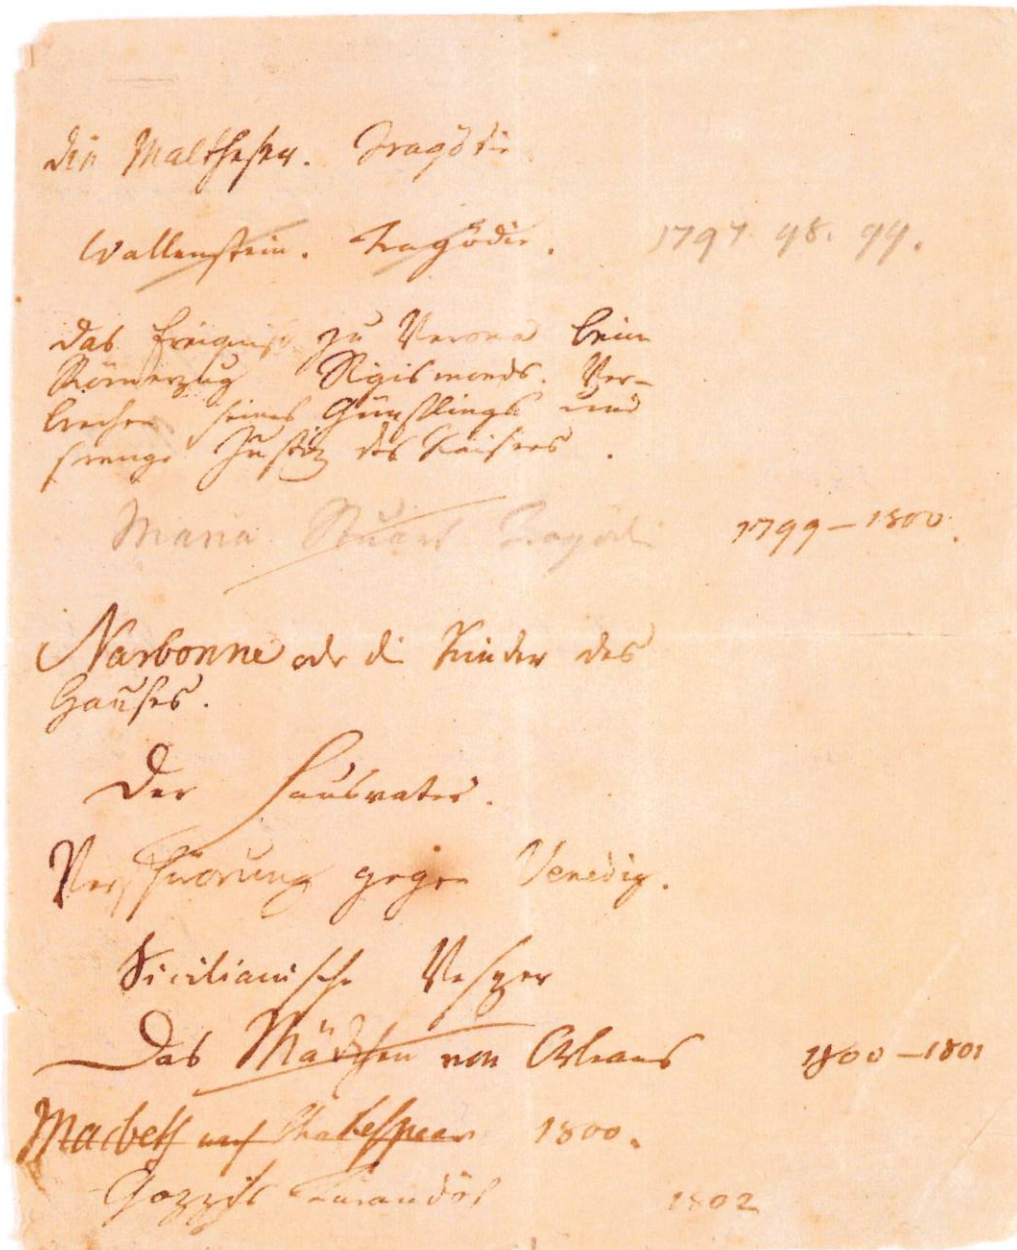 Die Maltheser. Tragödie
Wallenstein. Tragödie. 1797. 98. 99.
Das Ereigniß zu Verona beim
Römerzug Sigismonds. Ver-
brechen seines Günstlings und
strenge Justiz des Kaisers.
Maria Stuart Tragödie 1799-1800.
Narbonne oder die Kinder des
Hauses.
Der Hausvater.
Verschwörung gegen Venedig.
Sicilianische Vesper
Das Mädchen von Orleans 1800-1801
Macbeth nach Shakespear 1800.
Gozzis Turandot 1802